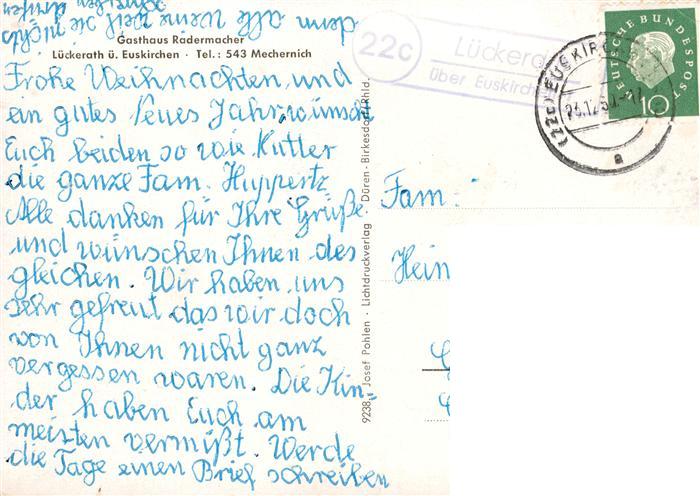 Gasthaus Radermacher
Lückerath ü. Euskirchen · Tel.: 543 Mechernich
Frohe Weihnachten und
ein gutes Neues Jahr wünscht
Euch beiden so wie Mutter
die ganze Fam. Huppertz
Alle danken für Ihre Grüße
und wünschen Ihnen des
gleichen. Wir haben uns
sehr gefreut das wir doch
von Ihnen nicht ganz
vergessen waren. Die Kin-
der haben Euch am
meisten vermißt. Werde
die Tage einen Brief schreiben
denn alle weil sie nichts
9238 Josef Pohlen · Lichtdruckverlag · Düren-Birkesdorf/Rhld.
22c
Lückerath
über Euskirchen
(22c) EUSKIRCHEN
a
DEUTSCHE BUNDESPOST
10
Fam.
Hein